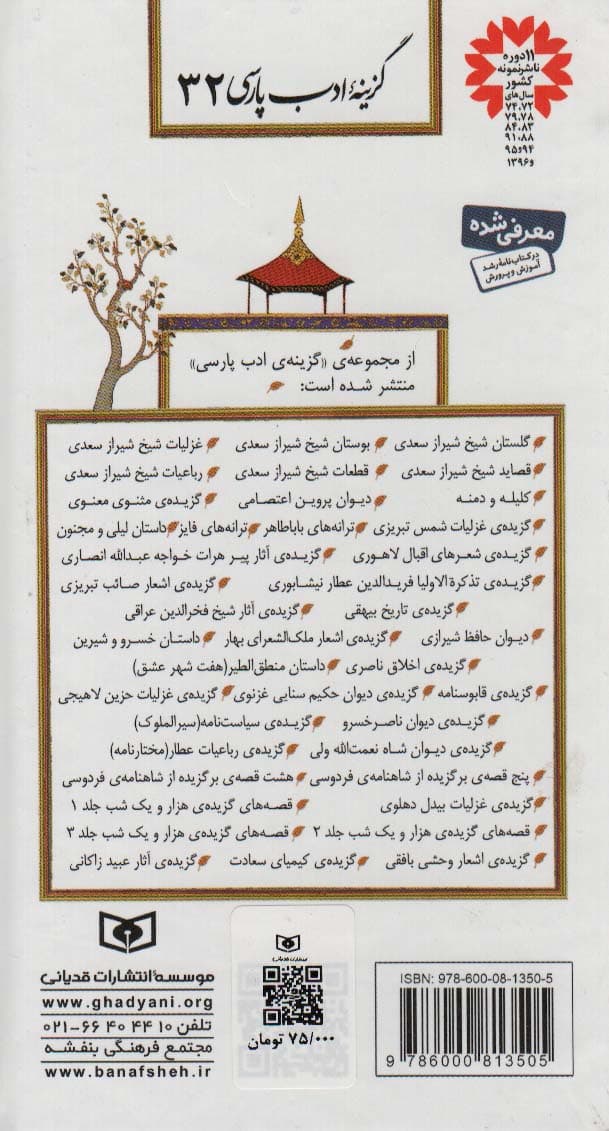 گزینهٔ ادب پارسی ۳۲
۱۱ دوره
ناشر نمونه
کشور
سال‌های
۷۴،۷۲
۷۹،۷۸
۸۴،۸۳
۹۱،۸۸
۹۴ و ۹۵
و ۱۳۹۶
معرفی شده
در کتاب‌نامهٔ رشد
آموزش و پرورش
از مجموعه‌ی «گزینه‌ی ادب پارسی»
منتشر شده است:
گلستان شیخ شیراز سعدی بوستان شیخ شیراز سعدی غزلیات شیخ شیراز سعدی
قصاید شیخ شیراز سعدی قطعات شیخ شیراز سعدی رباعیات شیخ شیراز سعدی
کلیله و دمنه دیوان پروین اعتصامی گزیده‌ی مثنوی معنوی
گزیده‌ی غزلیات شمس تبریزی ترانه‌های باباطاهر ترانه‌های فایز داستان لیلی و مجنون
گزیده‌ی شعرهای اقبال لاهوری گزیده‌ی آثار پیر هرات خواجه عبدالله انصاری
گزیده‌ی تذکرة الاولیا فریدالدین عطار نیشابوری گزیده‌ی اشعار صائب تبریزی
گزیده‌ی تاریخ بیهقی گزیده‌ی آثار شیخ فخرالدین عراقی
دیوان حافظ شیرازی گزیده‌ی اشعار ملک‌الشعرای بهار داستان خسرو و شیرین
گزیده‌ی اخلاق ناصری داستان منطق‌الطیر(هفت شهر عشق)
گزیده‌ی قابوسنامه گزیده‌ی دیوان حکیم سنایی غزنوی گزیده‌ی غزلیات حزین لاهیجی
گزیده‌ی دیوان ناصرخسرو گزیده‌ی سیاست‌نامه(سیرالملوک)
گزیده‌ی دیوان شاه نعمت‌الله ولی گزیده‌ی رباعیات عطار(مختارنامه)
پنج قصه‌ی برگزیده از شاهنامه‌ی فردوسی هشت قصه‌ی برگزیده از شاهنامه‌ی فردوسی
گزیده‌ی غزلیات بیدل دهلوی قصه‌های گزیده‌ی هزار و یک شب جلد ۱
قصه‌های گزیده‌ی هزار و یک شب جلد ۲ قصه‌های گزیده‌ی هزار و یک شب جلد ۳
گزیده‌ی اشعار وحشی بافقی گزیده‌ی کیمیای سعادت گزیده‌ی آثار عبید زاکانی
موسسهٔ انتشارات قدیانی
www.ghadyani.org
تلفن ۱۰ ۴۴ ۴۰ ۶۶-۰۲۱
مجتمع فرهنگی بنفشه
www.banafsheh.ir
انتشارات قدیانی
۷۵/۰۰۰ تومان
ISBN: 978-600-08-1350-5
9 786000 813505